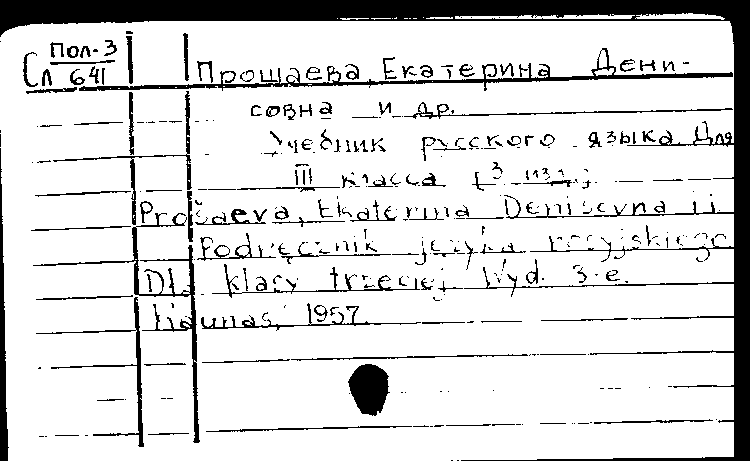 Пол-3
Сл 641
Прошаева, Екатерина Дени-
совна и др.
Учебник русского языка. Для
III класса [3 изд.]
Prošaeva, Ekaterina Denisovna i i.
Podręcznik języka rosyjskiego
Dla klasy trzeciej Wyd. 3-e.
Kaunas, 1957.